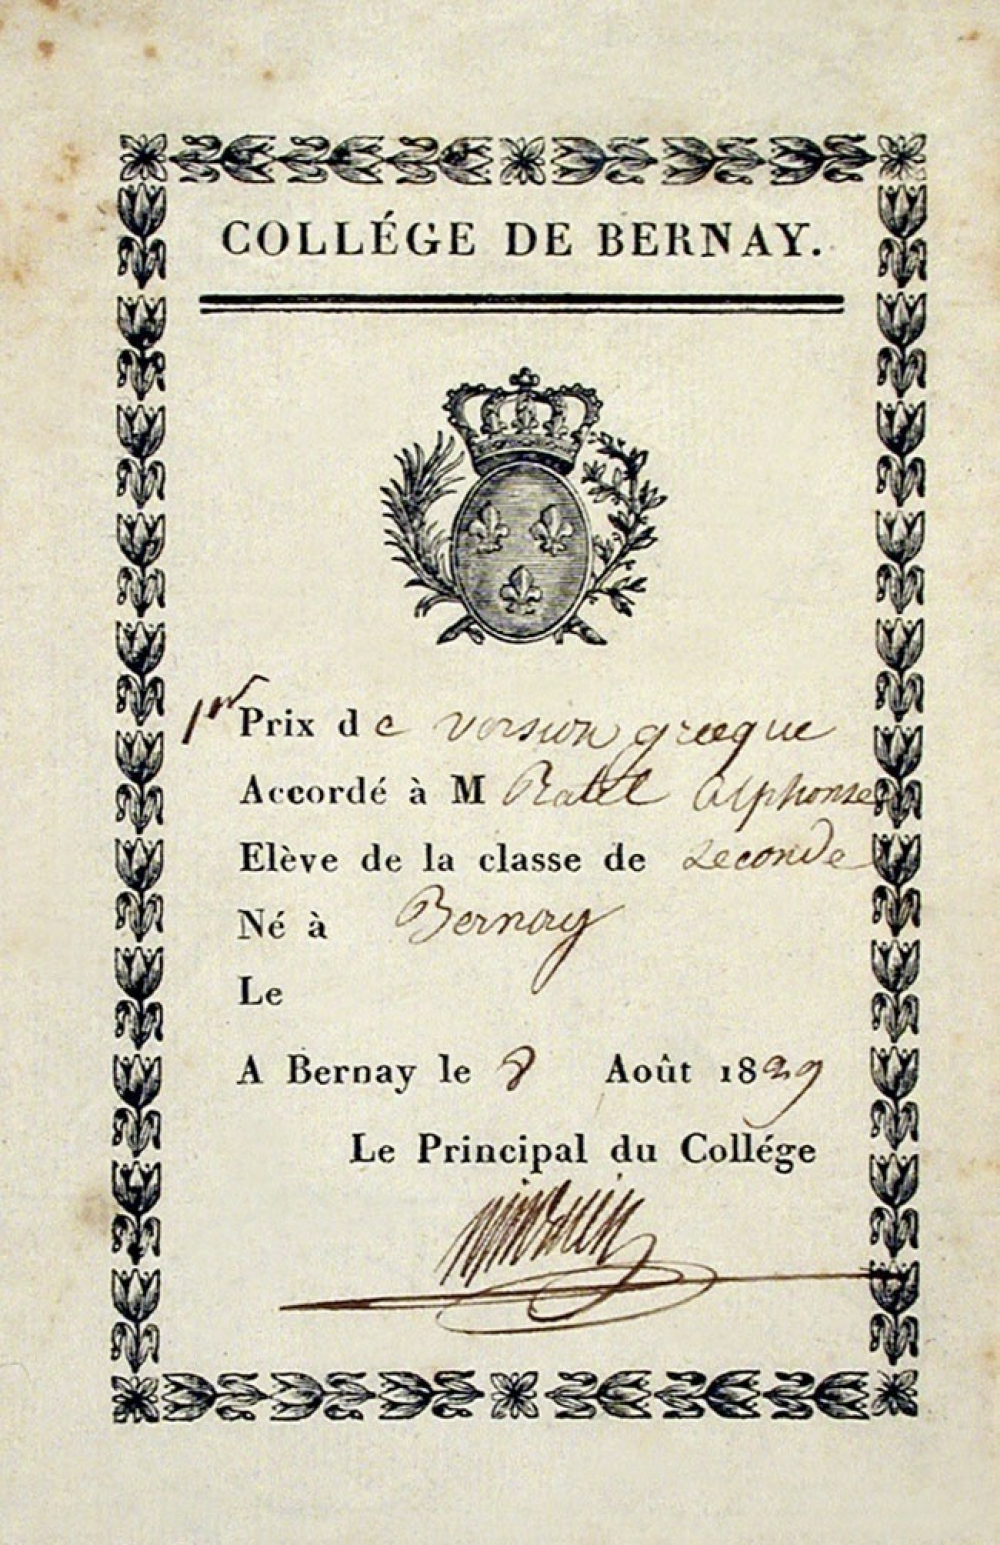 COLLÉGE DE BERNAY.
1er Prix de version grecque
Accordé à M Ratel Alphonse
Elève de la classe de seconde
Né à Bernay
Le
A Bernay le 8 Août 1829
Le Principal du Collége